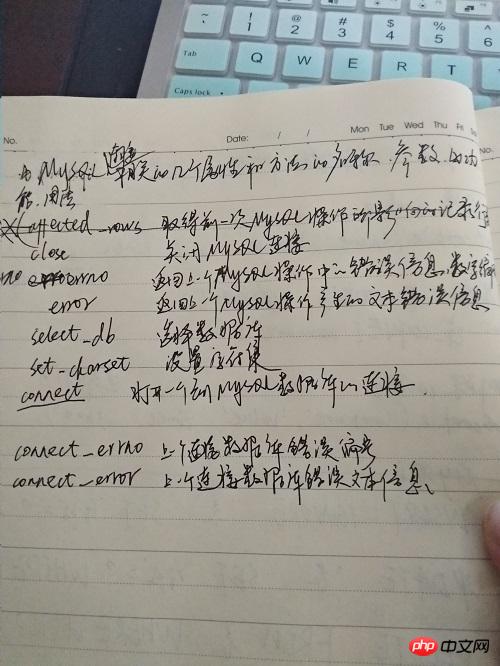 ! 1
@ 2
# 3
$ 4
% 5
Tab
Q W E R T
Caps Lock
A
No.
Date: / /
Mon Tue Wed Thu Fri
No.
与MySQL连接有关的几个属性和方法的名称、参数、的功
能、用法
affected_rows 取得前一次MySQL操作所影响的记录行
close 关闭MySQL连接
errno 返回上一个MySQL操作中的错误信息数字编
error 返回上一个MySQL操作产生的文本错误信息
select_db 选择数据库
set_charset 设置字符集
connect 打开一个到MySQL数据库的连接.
connect_errno 上个连接数据库错误编号
connect_error 上个连接数据库错误文本信息、
php 中文网